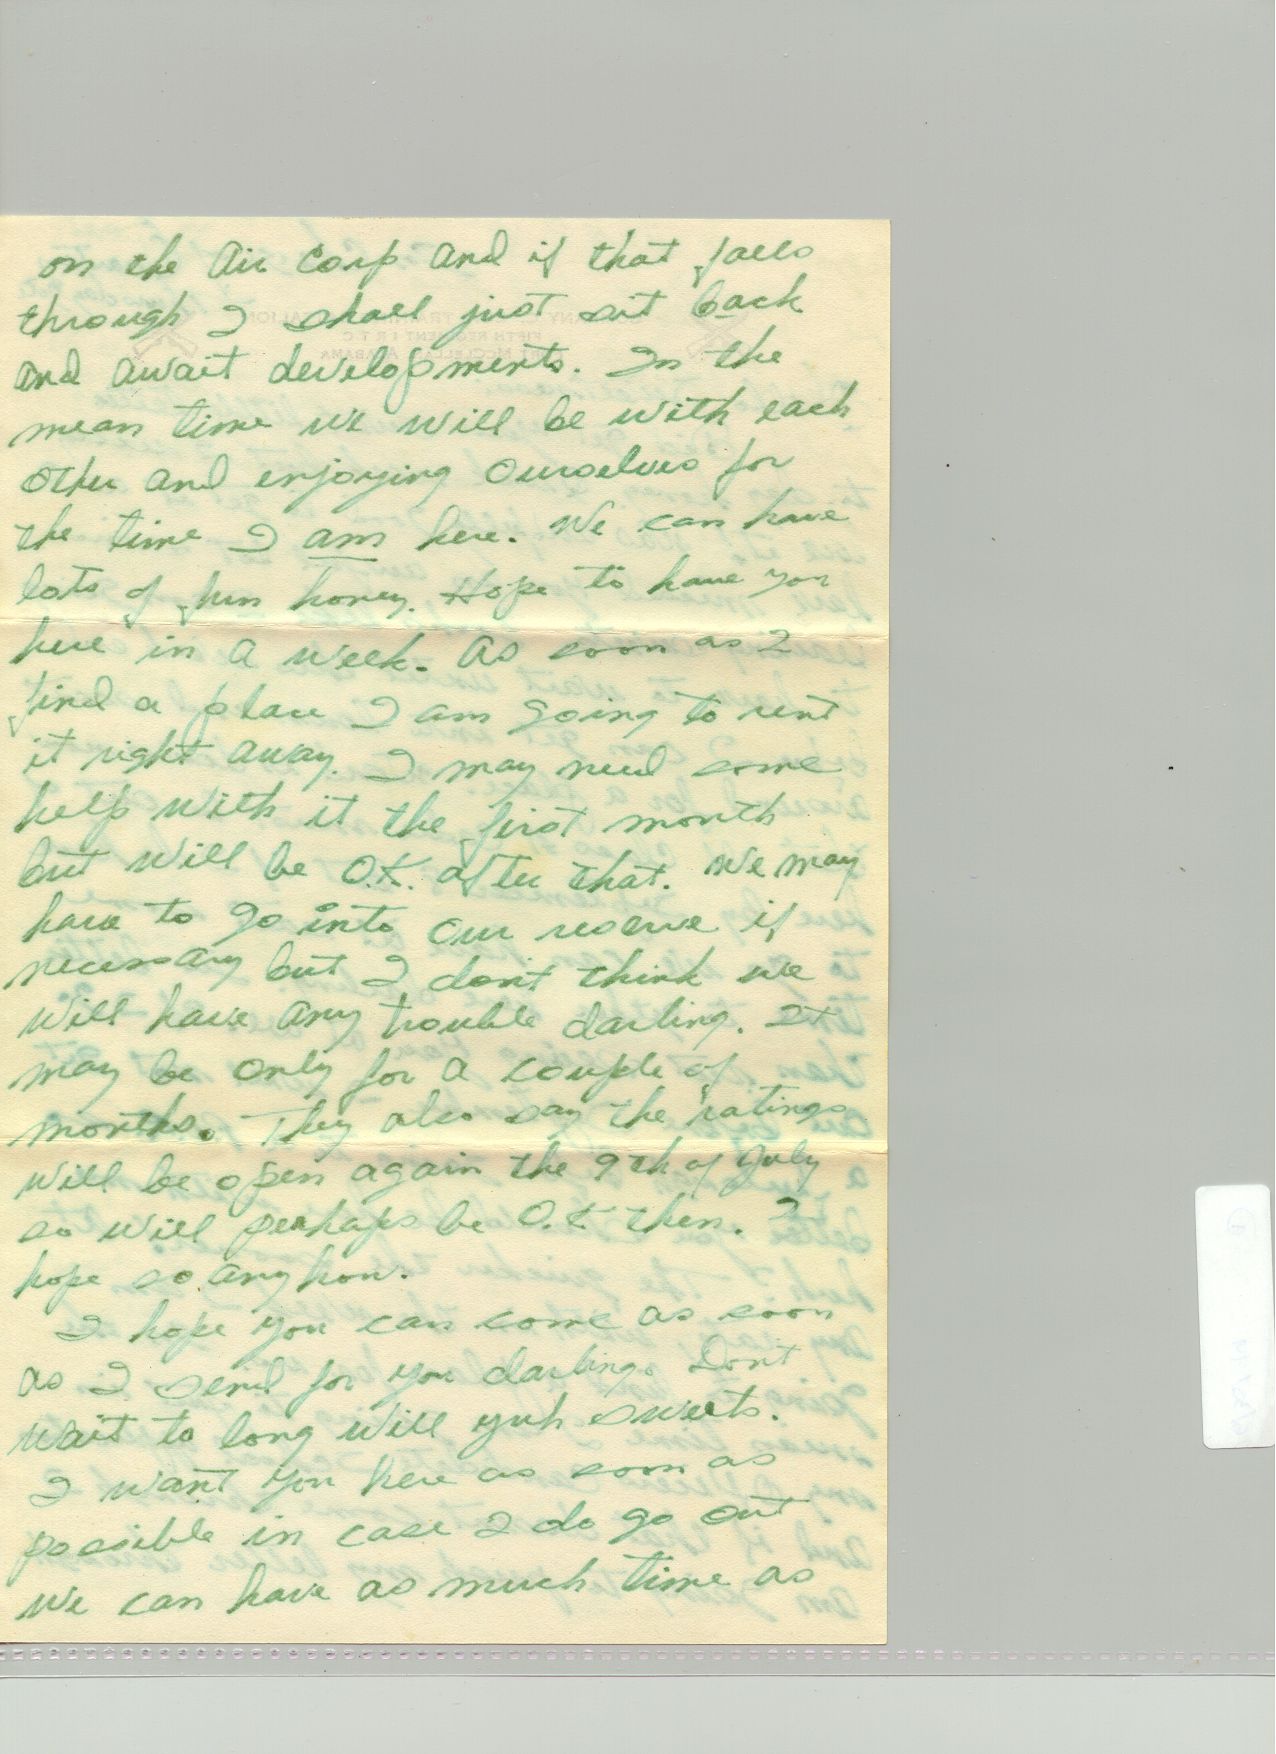 on the Air Corp and if that falls
through I shall just sit back
and await developments. In the
mean time we will be with each
other and enjoying ourselves for
the time I am here. We can have
lots of fun honey. Hope to have you
here in a week. As soon as I
find a place I am going to rent
it right away. I may need some
help with it the first month
but will be O.K. after that. We may
have to go into our reserve if
necessary but I don't think we
will have any trouble darling. It
may be only for a couple of
months. They also say the ratings
will be open again the 9th of July
so will perhaps be O.K then. I
hope so anyhow.
I hope you can come as soon
as I send for you darling. Dont
wait to long will yuh sweets.
I want you here as soon as
possible in case I do go out
we can have as much time as